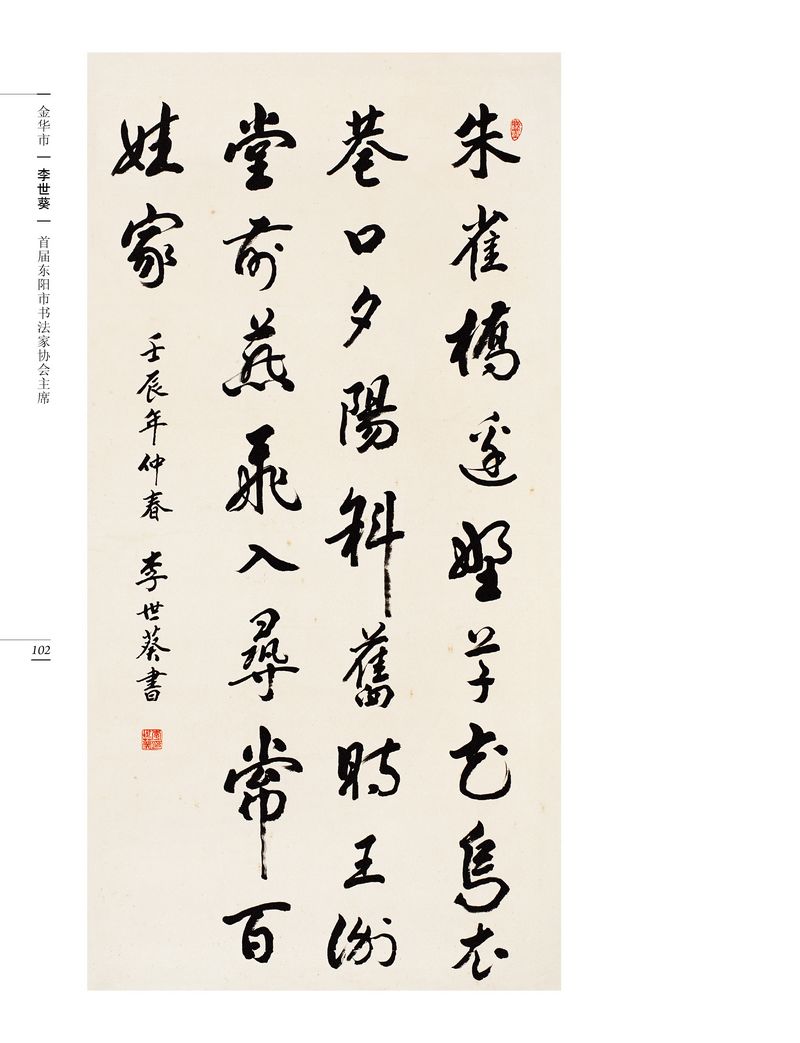 朱雀橋邊野草花烏衣
巷口夕陽斜舊時王謝
堂前燕飛入尋常百
姓家
壬辰年仲春 李世葵書
金华市 | 李世葵 | 首届东阳市书法家协会主席
102